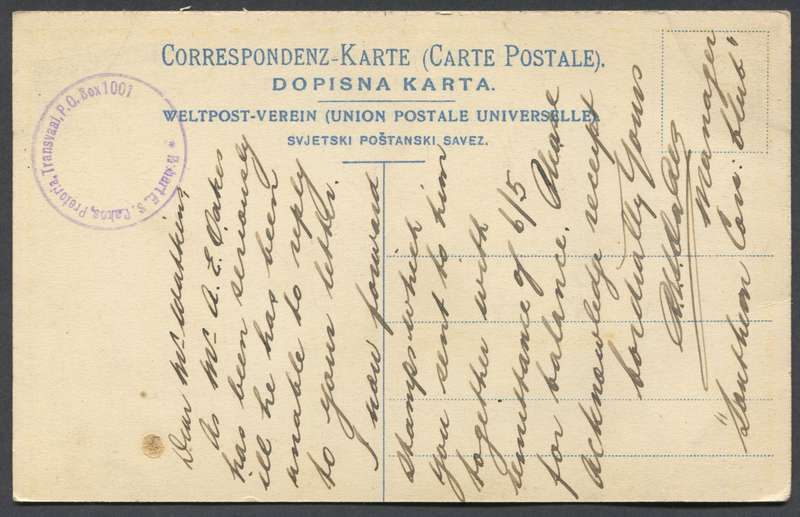 CORRESPONDENZ-KARTE (CARTE POSTALE).
DOPISNA KARTA.
WELTPOST-VEREIN (UNION POSTALE UNIVERSELLE).
SVJETSKI POŠTANSKI SAVEZ.
E. S. Oakes, Pretoria, Transvaal, P.O. Box 1001
Dear Mr Watkins,
As Mr A. E. Oakes
has been seriously
ill he has been
unable to reply
to your letter.
I now forward
stamps which
you sent to him
together with
remittance of 6/5
for balance. Please
acknowledge receipt
Cordially Yours
Manager
"Southern Corr: Club"